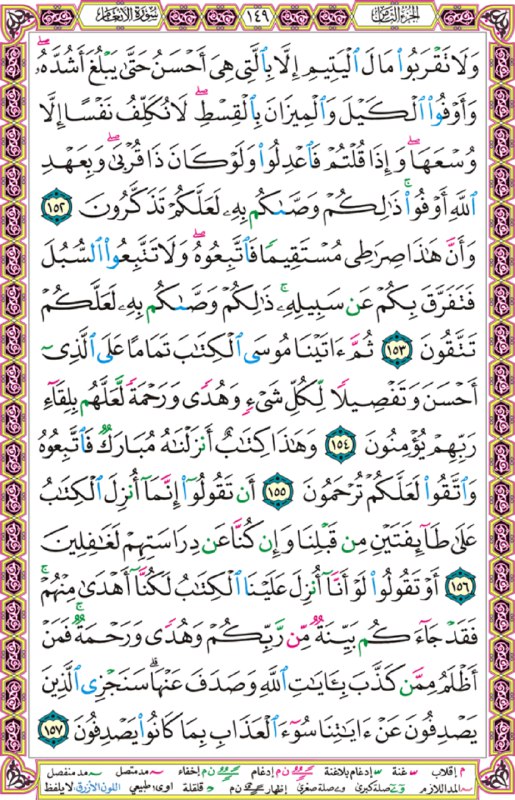 سورة الأنعام ١٤٩ الجزء الثامن
وَلَا تَقْرَبُوا۟ مَالَ ٱلْيَتِيمِ إِلَّا بِٱلَّتِى هِىَ أَحْسَنُ حَتَّىٰ يَبْلُغَ أَشُدَّهُۥۖ
وَأَوْفُوا۟ ٱلْكَيْلَ وَٱلْمِيزَانَ بِٱلْقِسْطِۖ لَا نُكَلِّفُ نَفْسًا إِلَّا
وُسْعَهَاۖ وَإِذَا قُلْتُمْ فَٱعْدِلُوا۟ وَلَوْ كَانَ ذَا قُرْبَىٰۖ وَبِعَهْدِ
ٱللَّهِ أَوْفُوا۟ۚ ذَٰلِكُمْ وَصَّىٰكُم بِهِۦ لَعَلَّكُمْ تَذَكَّرُونَ ١٥٢
وَأَنَّ هَٰذَا صِرَٰطِى مُسْتَقِيمًا فَٱتَّبِعُوهُۖ وَلَا تَتَّبِعُوا۟ ٱلسُّبُلَ
فَتَفَرَّقَ بِكُمْ عَن سَبِيلِهِۦۚ ذَٰلِكُمْ وَصَّىٰكُم بِهِۦ لَعَلَّكُمْ
تَتَّقُونَ ١٥٣ ثُمَّ ءَاتَيْنَا مُوسَى ٱلْكِتَٰبَ تَمَامًا عَلَى ٱلَّذِىٓ
أَحْسَنَ وَتَفْصِيلًا لِّكُلِّ شَىْءٍ وَهُدًى وَرَحْمَةً لَّعَلَّهُم بِلِقَآءِ
رَبِّهِمْ يُؤْمِنُونَ ١٥٤ وَهَٰذَا كِتَٰبٌ أَنزَلْنَٰهُ مُبَارَكٌ فَٱتَّبِعُوهُ
وَٱتَّقُوا۟ لَعَلَّكُمْ تُرْحَمُونَ ١٥٥ أَن تَقُولُوٓا۟ إِنَّمَآ أُنزِلَ ٱلْكِتَٰبُ
عَلَىٰ طَآئِفَتَيْنِ مِن قَبْلِنَا وَإِن كُنَّا عَن دِرَاسَتِهِمْ لَغَٰفِلِينَ
١٥٦ أَوْ تَقُولُوا۟ لَوْ أَنَّآ أُنزِلَ عَلَيْنَا ٱلْكِتَٰبُ لَكُنَّآ أَهْدَىٰ مِنْهُمْۚ
فَقَدْ جَآءَكُم بَيِّنَةٌ مِّن رَّبِّكُمْ وَهُدًى وَرَحْمَةٌۚ فَمَنْ
أَظْلَمُ مِمَّن كَذَّبَ بِـَٔايَٰتِ ٱللَّهِ وَصَدَفَ عَنْهَاۗ سَنَجْزِى ٱلَّذِينَ
يَصْدِفُونَ عَنْ ءَايَٰتِنَا سُوٓءَ ٱلْعَذَابِ بِمَا كَانُوا۟ يَصْدِفُونَ ١٥٧
م إقلاب غنة إدغام بلاغنة ن م إدغام ن م إخفاء مد متصل مد منفصل
المد اللازم صلة كبرى صلة صغرى إظهار ن م قلقلة اوى: طبيعي اللون الأزرق: لا يلفظ